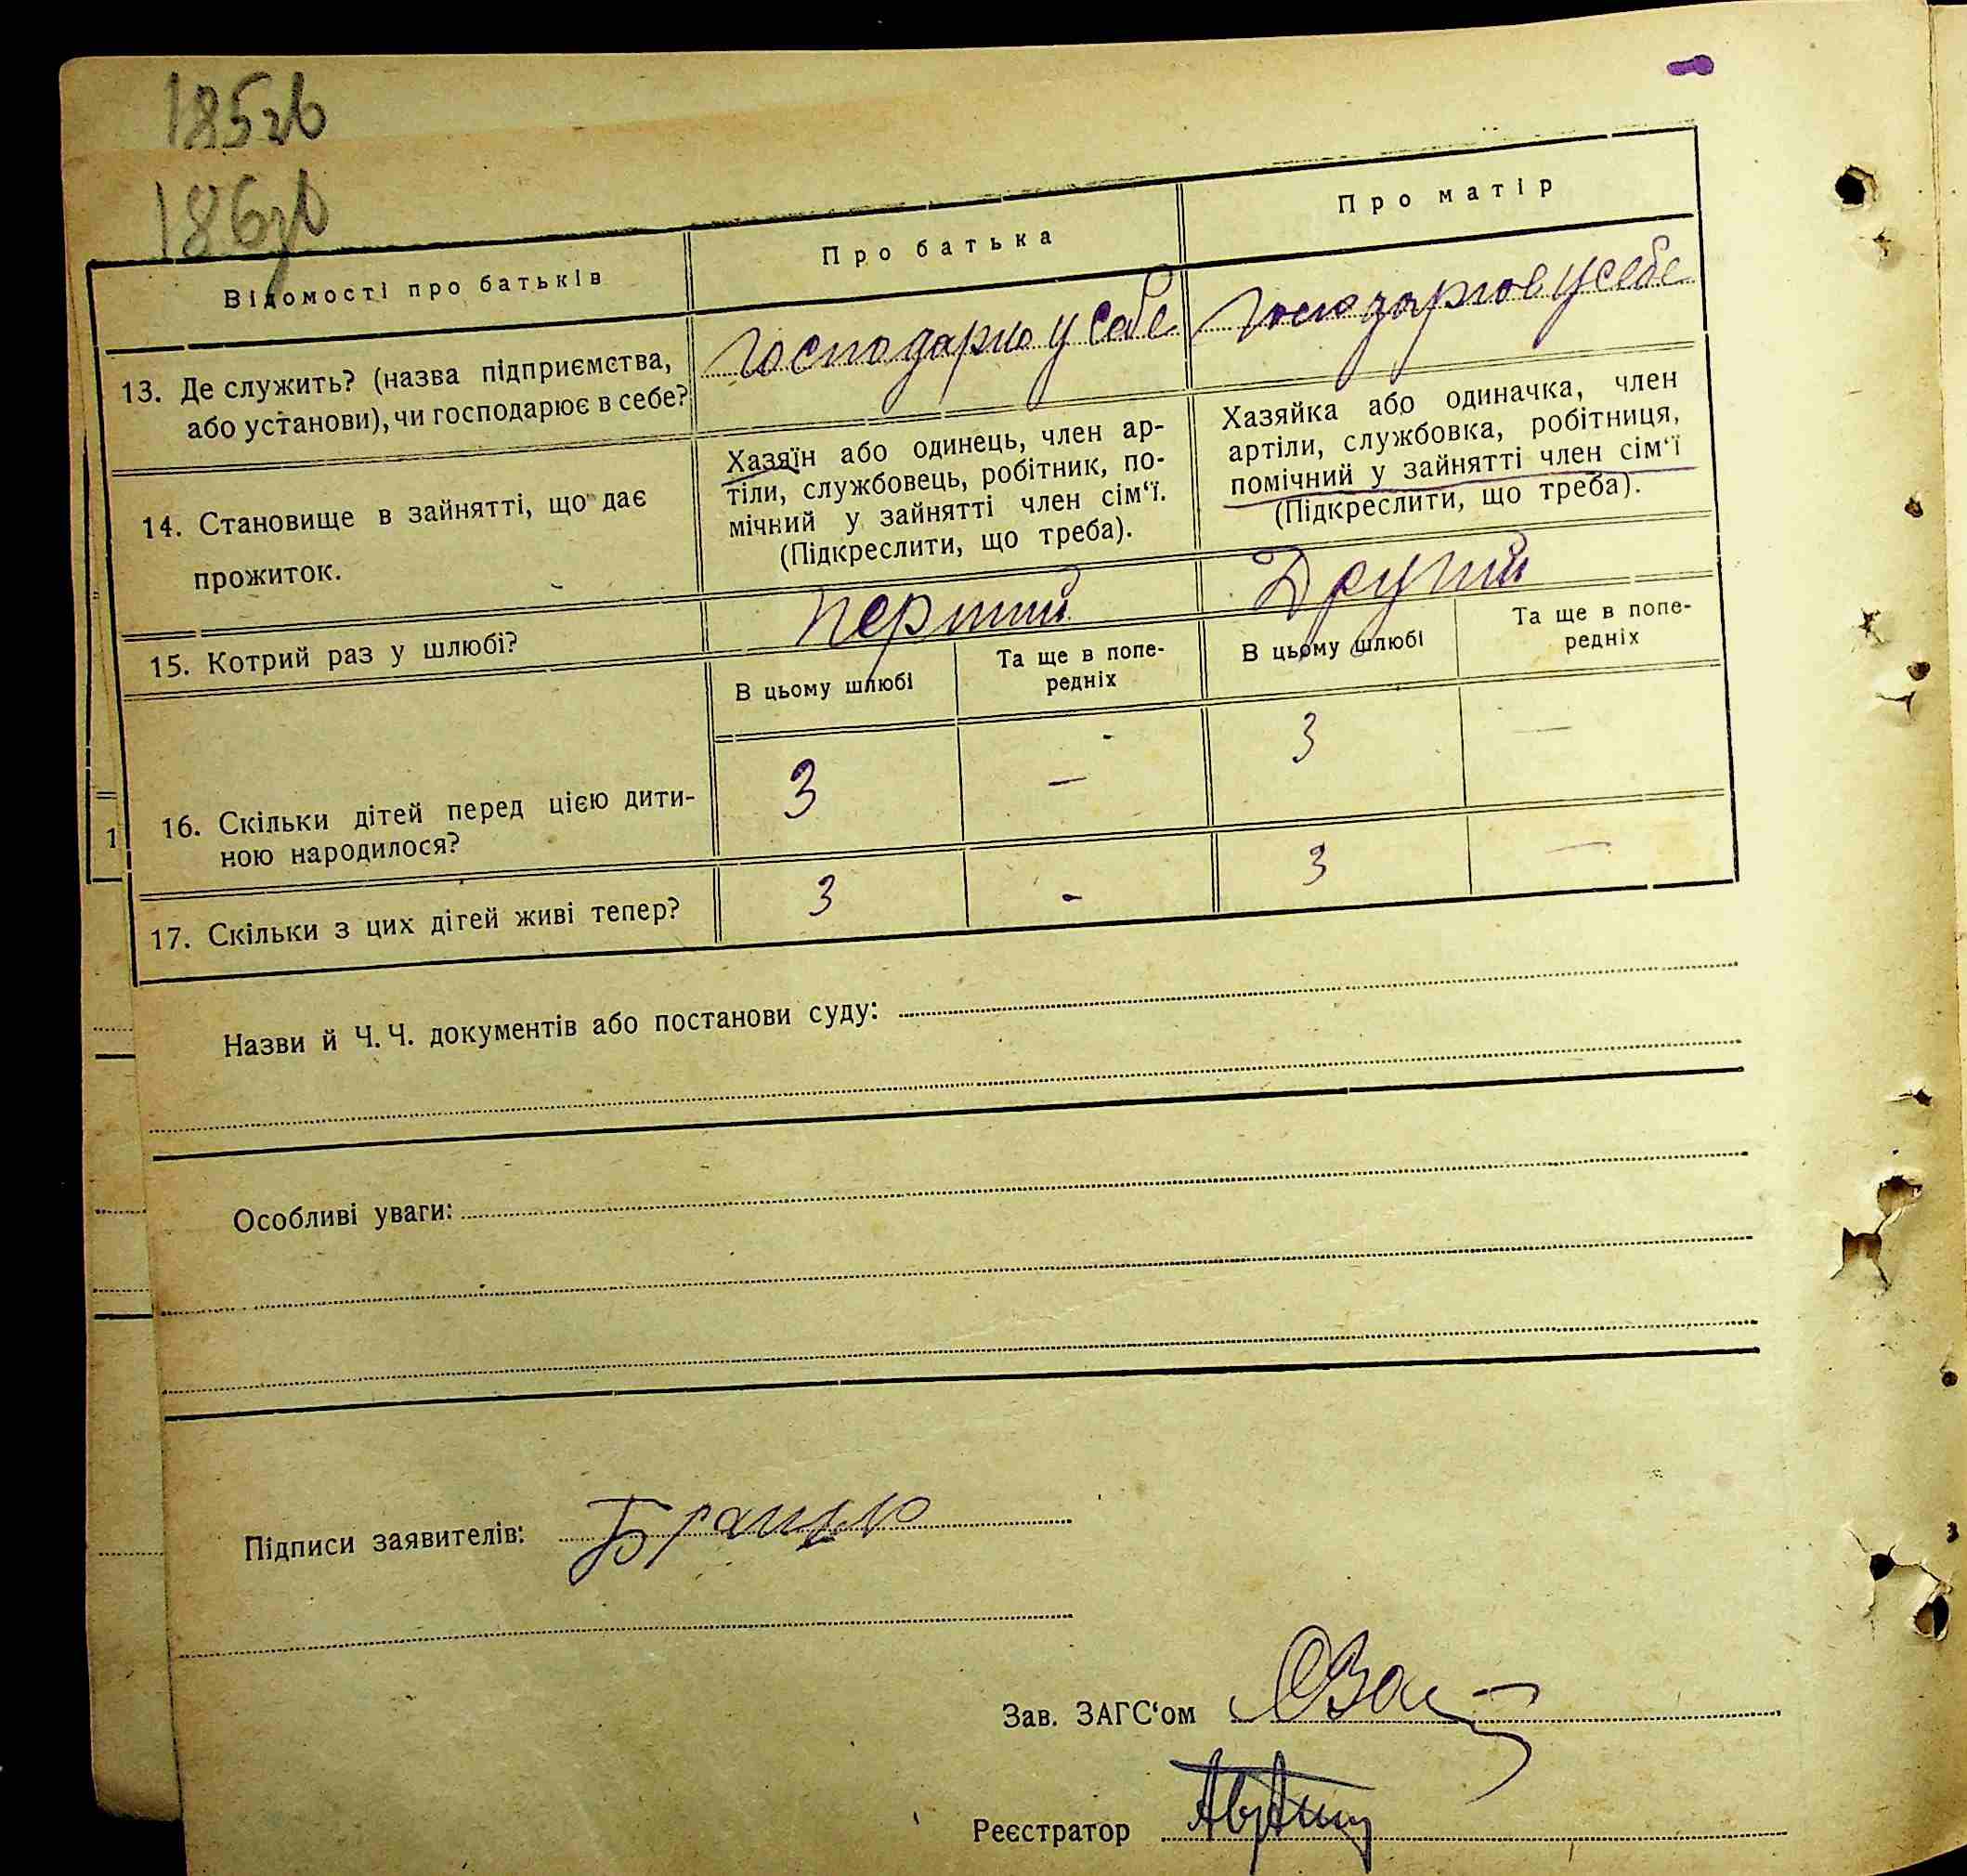 185зв
186зв
Відомості про батьків
Про батька
Про матір
13. Де служить? (назва підприємства,
або установи), чи господарює в себе?
Господарю у себе
Господарює у себе
14. Становище в зайнятті, що дає
прожиток.
Хазяїн або одинець, член ар-
тіли, службовець, робітник, по-
мічний у зайнятті член сім'ї.
(Підкреслити, що треба).
Хазяйка або одиначка, член
артіли, службовка, робітниця,
помічний у зайнятті член сім'ї
(Підкреслити, що треба).
15. Котрий раз у шлюбі?
перший
Другий
В цьому шлюбі
Та ще в попе-
редніх
В цьому шлюбі
Та ще в попе-
редніх
16. Скільки дітей перед цією дити-
ною народилося?
3
—
3
—
17. Скільки з цих дітей живі тепер?
3
-
3
—
1
Назви й Ч. Ч. документів або постанови суду:
Особливі уваги:
Підписи заявителів:
Зав. ЗАГС'ом
Реєстратор